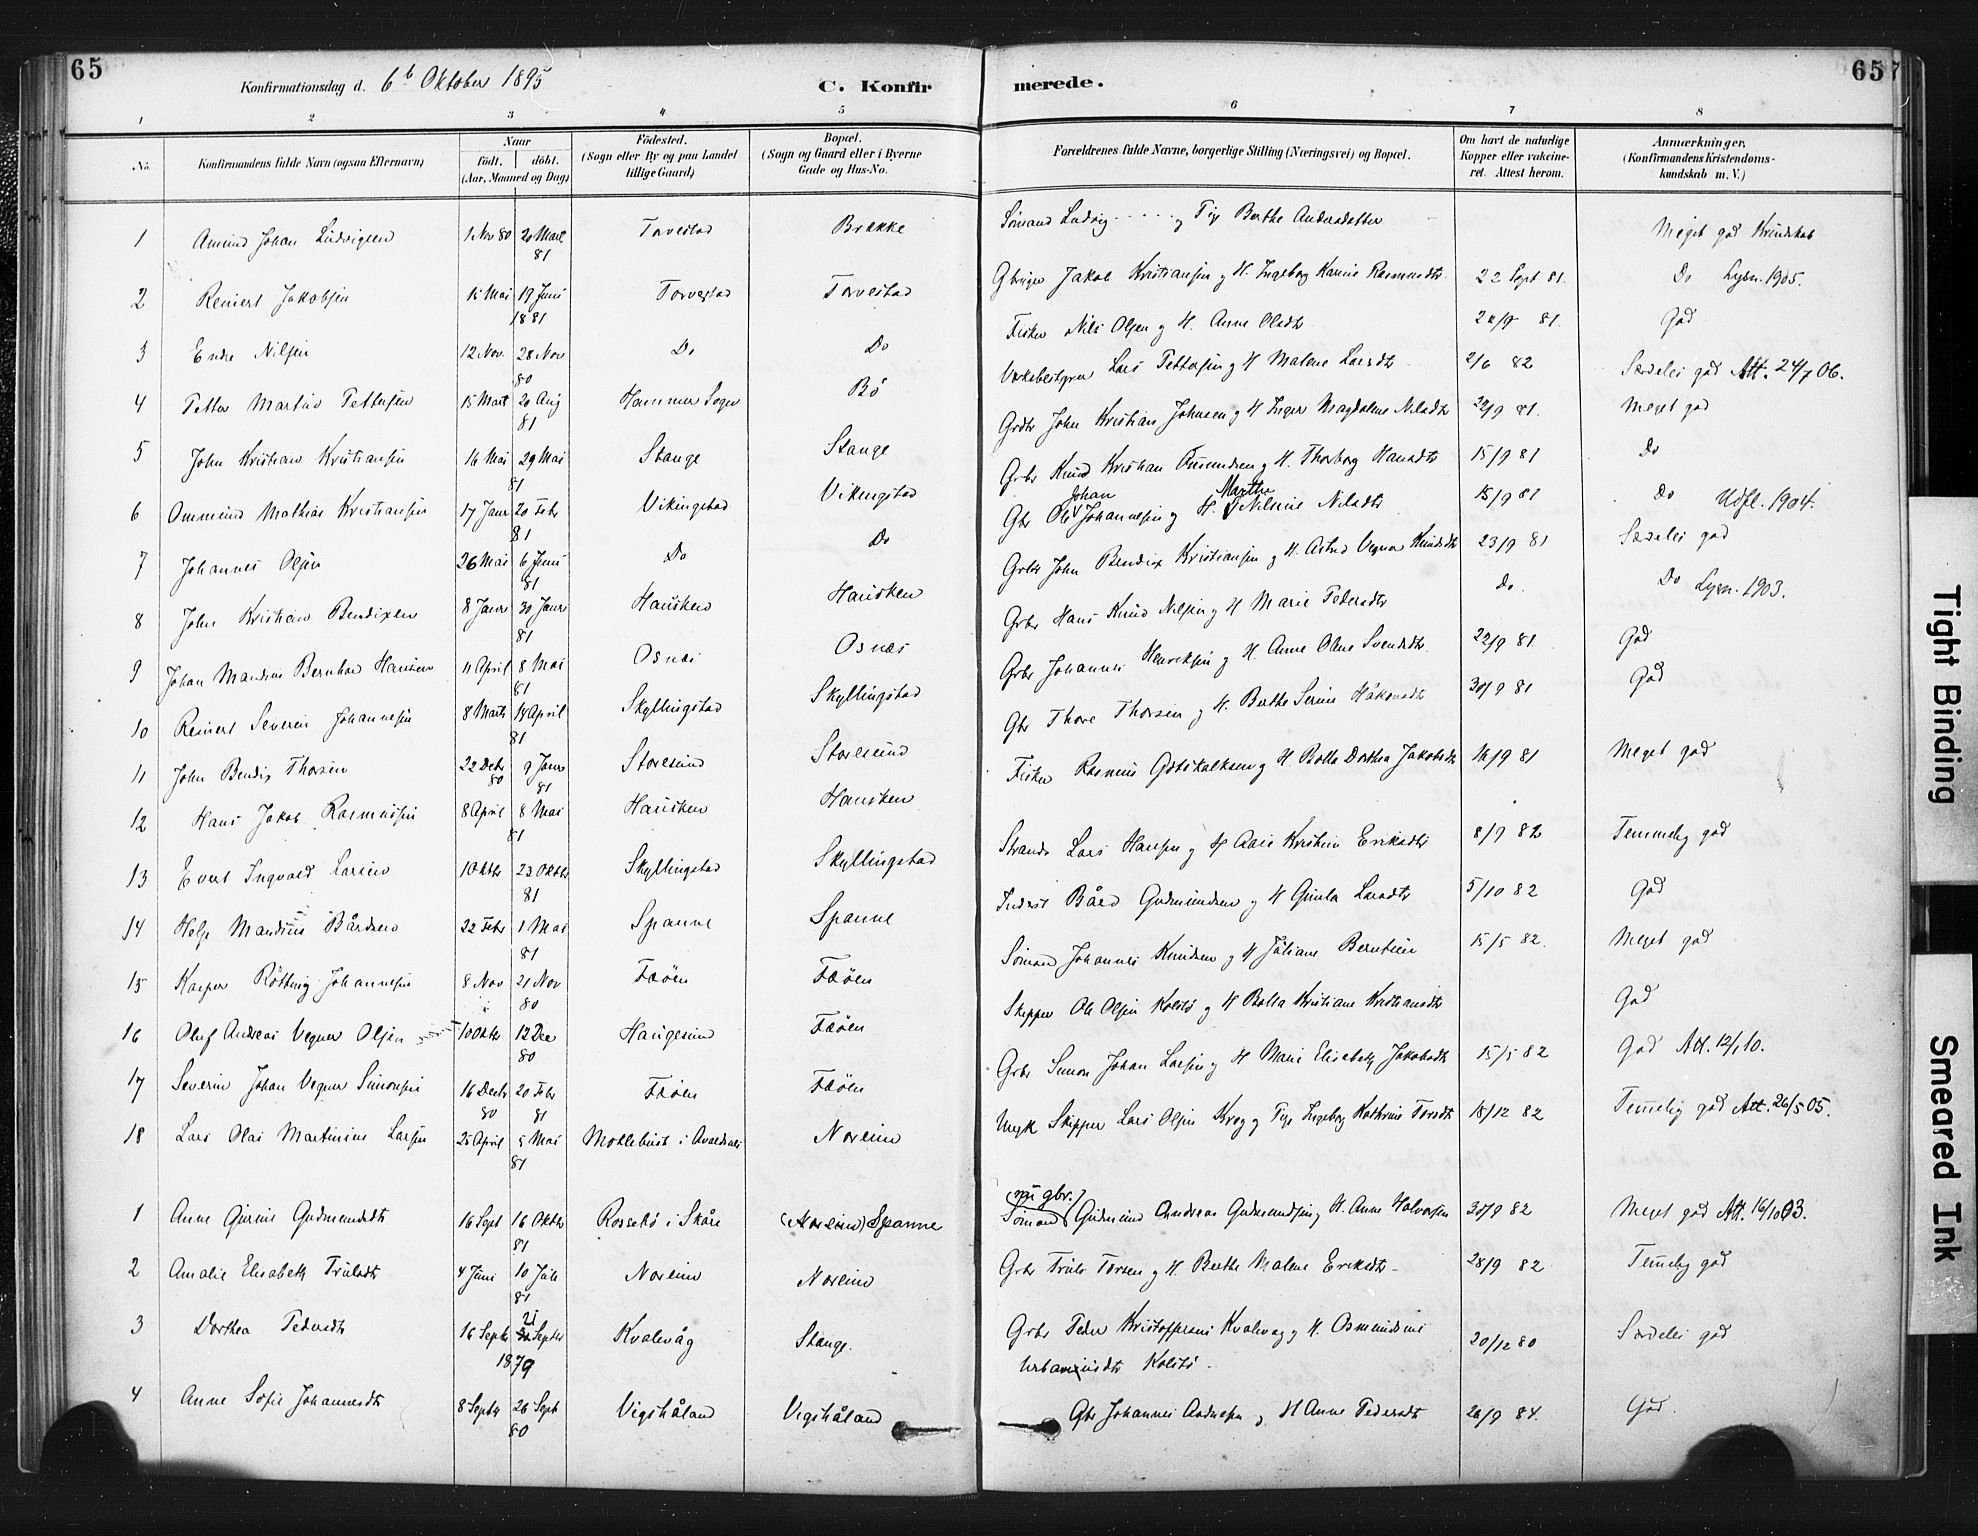 65
Konfirmationsdag d. 6te Oktober 1895
C. Konfir
merede.
657
1 2 3 4 5 6 7 8
No.
Konfirmandens fulde Navn (ogsaa Efternavn)
Naar
født. | døbt.
(Aar, Maaned og Dag)
Fødested.
(Sogn eller By og paa Landet
tillige Gaard)
Bopæl.
(Sogn og Gaard eller i Byerne
Gade og Hus-No.
Forældrenes fulde Navne, borgerlige Stilling (Næringsvei) og Bopæl.
Om havt de naturlige
Kopper eller vakcine-
ret. Attest herom.
Anmærkninger,
(Konfirmandens Kristendoms-
kundskab m. V.)
1 Amund Johan Ludvigsen 1 Nov 80 20 Mart 81 Torvestad Brække Sømand Ludvig - - - - - og Pige Berthe Andersdatter Meget god Kundskab
2 Reinert Jakobsen 15 Mai 19 Juni 1881 Torvestad Torvestad Jakob Kristiansen og H. Ingeborg Karine Rasmusdtr 22 Sept 81. Do Lysn. 1905.
3 Endre Nilsen 12 Nov. 28 Nov 80 Do Do Fisker Nils Olsen og H. Anne Olsdtr 81. God
4 Petter Martin Pettersen 15 Mart 20 Aug 81 Hammer Sogn Bø Lars Pettersen og H Malene Larsdtr 2/6 82 Særdeles god Att. 24/7 06.
5 John Kristian Kristiansen 16 Mai 29 Mai 81 Stange Stange Grbr John Kristian Johnsen og H Inger Magdalene Nilsdtr 22/9 81. Meget god
6 Ommund Mathias Kristiansen 17 Janr 20 Febr 81 Vikingstad Vikingstad Grbr Knud Kristian Amundsen og H. Thorborg Hansdtr 15/9 81 Do
7 Johannes Olsen 26 Mai 6 Juni 81 Do Do Gbr Ole Johan Johannesen og H. Marthe Nilsine Nilsdtr 15/9 81 Do Udfl. 1904.
8 John Kristian Bendixen 8 Janr 30 Janr 81 Hausken Hausken Grbr John Bendix Kristiansen og H. Astrid Vegner Knudsdtr 23/9 81 Særdeles god
9 Johan Mandius Bernhard Hansen 11 April 8 Mai 81 Osnæs Osnæs Grbr Hans Knud Nilsen og H Marie Pedersdtr do. Do Lysn. 1903.
10 Reinert Severin Johannesen 8 Marts 14 April 81 Skyllingstad Skyllingstad Grbr Johannes Henriksen og H. Anne Oline Svendsdtr 22/9 81 God
11 John Bendix Thorsen 22 Debr 80 9 Janr 81 Storesund Storesund Gbr Thore Thorsen og H. Berthe Serine Håkonsdtr 30/9 81 God
12 Hans Jakob Rasmussen 8 April 8 Mai 81 Hausken Hausken Fisker Rasmus Gotskalksen og H. Bolla Dorthea Jakobsdtr 16/9 81 Meget god
13 Evert Ingvald Larsen 10 Oktbr 23 Oktbr 81 Skyllingstad Skyllingstad Strands Lars Hansen og H Kristine Eriksdtr 8/9 82 Temmelig god
14 Helge Mandius Bårdsen 22 Febr 1 Mai 81 Spanne Spanne Inderst Bård Gudmundsen og H Gunla Larsdtr 5/10 82 God
15 Kasper Røtting Johannesen 8 Nov 21 Nov 80 Feøen Feøen Sømand Johannes Knudsen og H Juliane Berntsine 15/5 82. Meget god
16 Oluf Andreas Vegner Olsen 10 Oktbr 12 Dec 80 Haugesund Feøen Skipper Ole Olsen Kolstø og H Bolla Kristiane Kristiansdtr God
17 Severin Johan Vegner Simonsen 16 Decbr 80 20 Febr 81 Feøen Feøen Grbr Simon Johan Larsen og H Marie Elisabeth Jakobsdtr 15/5 82 God Att. 12/1 10.
18 Lars Olai Martinius Larsen 25 April 5 Mai 81 Motlebust i Avaldsnes Noreim Ungk Skipper Lars Olsen Krog og Pige Ingeborg Kathrine Torsdtr 18/12 82 Temelig god Att. 26/5 05.
1 Anne Gurine Gudmundsdtr 16 Sept 16 Oktbr 81 Rossebø i Skåre (Noreim) Spanne (nu gbr.) Sømand Gudmund Andreas Gudmundsen og H. Anne Halvorsen 30/9 82 Meget god Att. 16/10 03.
2 Amalie Elisabeth Trulsdtr 4 Juni 10 Juli 81 Noreim Noreim Grbr Truls Torsen og H. Berthe Malene Eriksdtr 28/9 82 Temelig god
3 Dorthea Pedersdtr 16 Septbr 21 Septbr 1879 Kvalevåg Stange. Grbr Peder Kristoffersen Kvalevag og H. Osmundine
Urbanusdtr Kolstø. 20/12 80 Særdeles god
4 Anne Sofie Johannesdtr 8 Septbr 26 Sept 80 Vigshåland Vigshåland Gbr Johannes Andersen og H Anne Pedersdtr 26/9 84. God.
Tight Binding
Smeared Ink